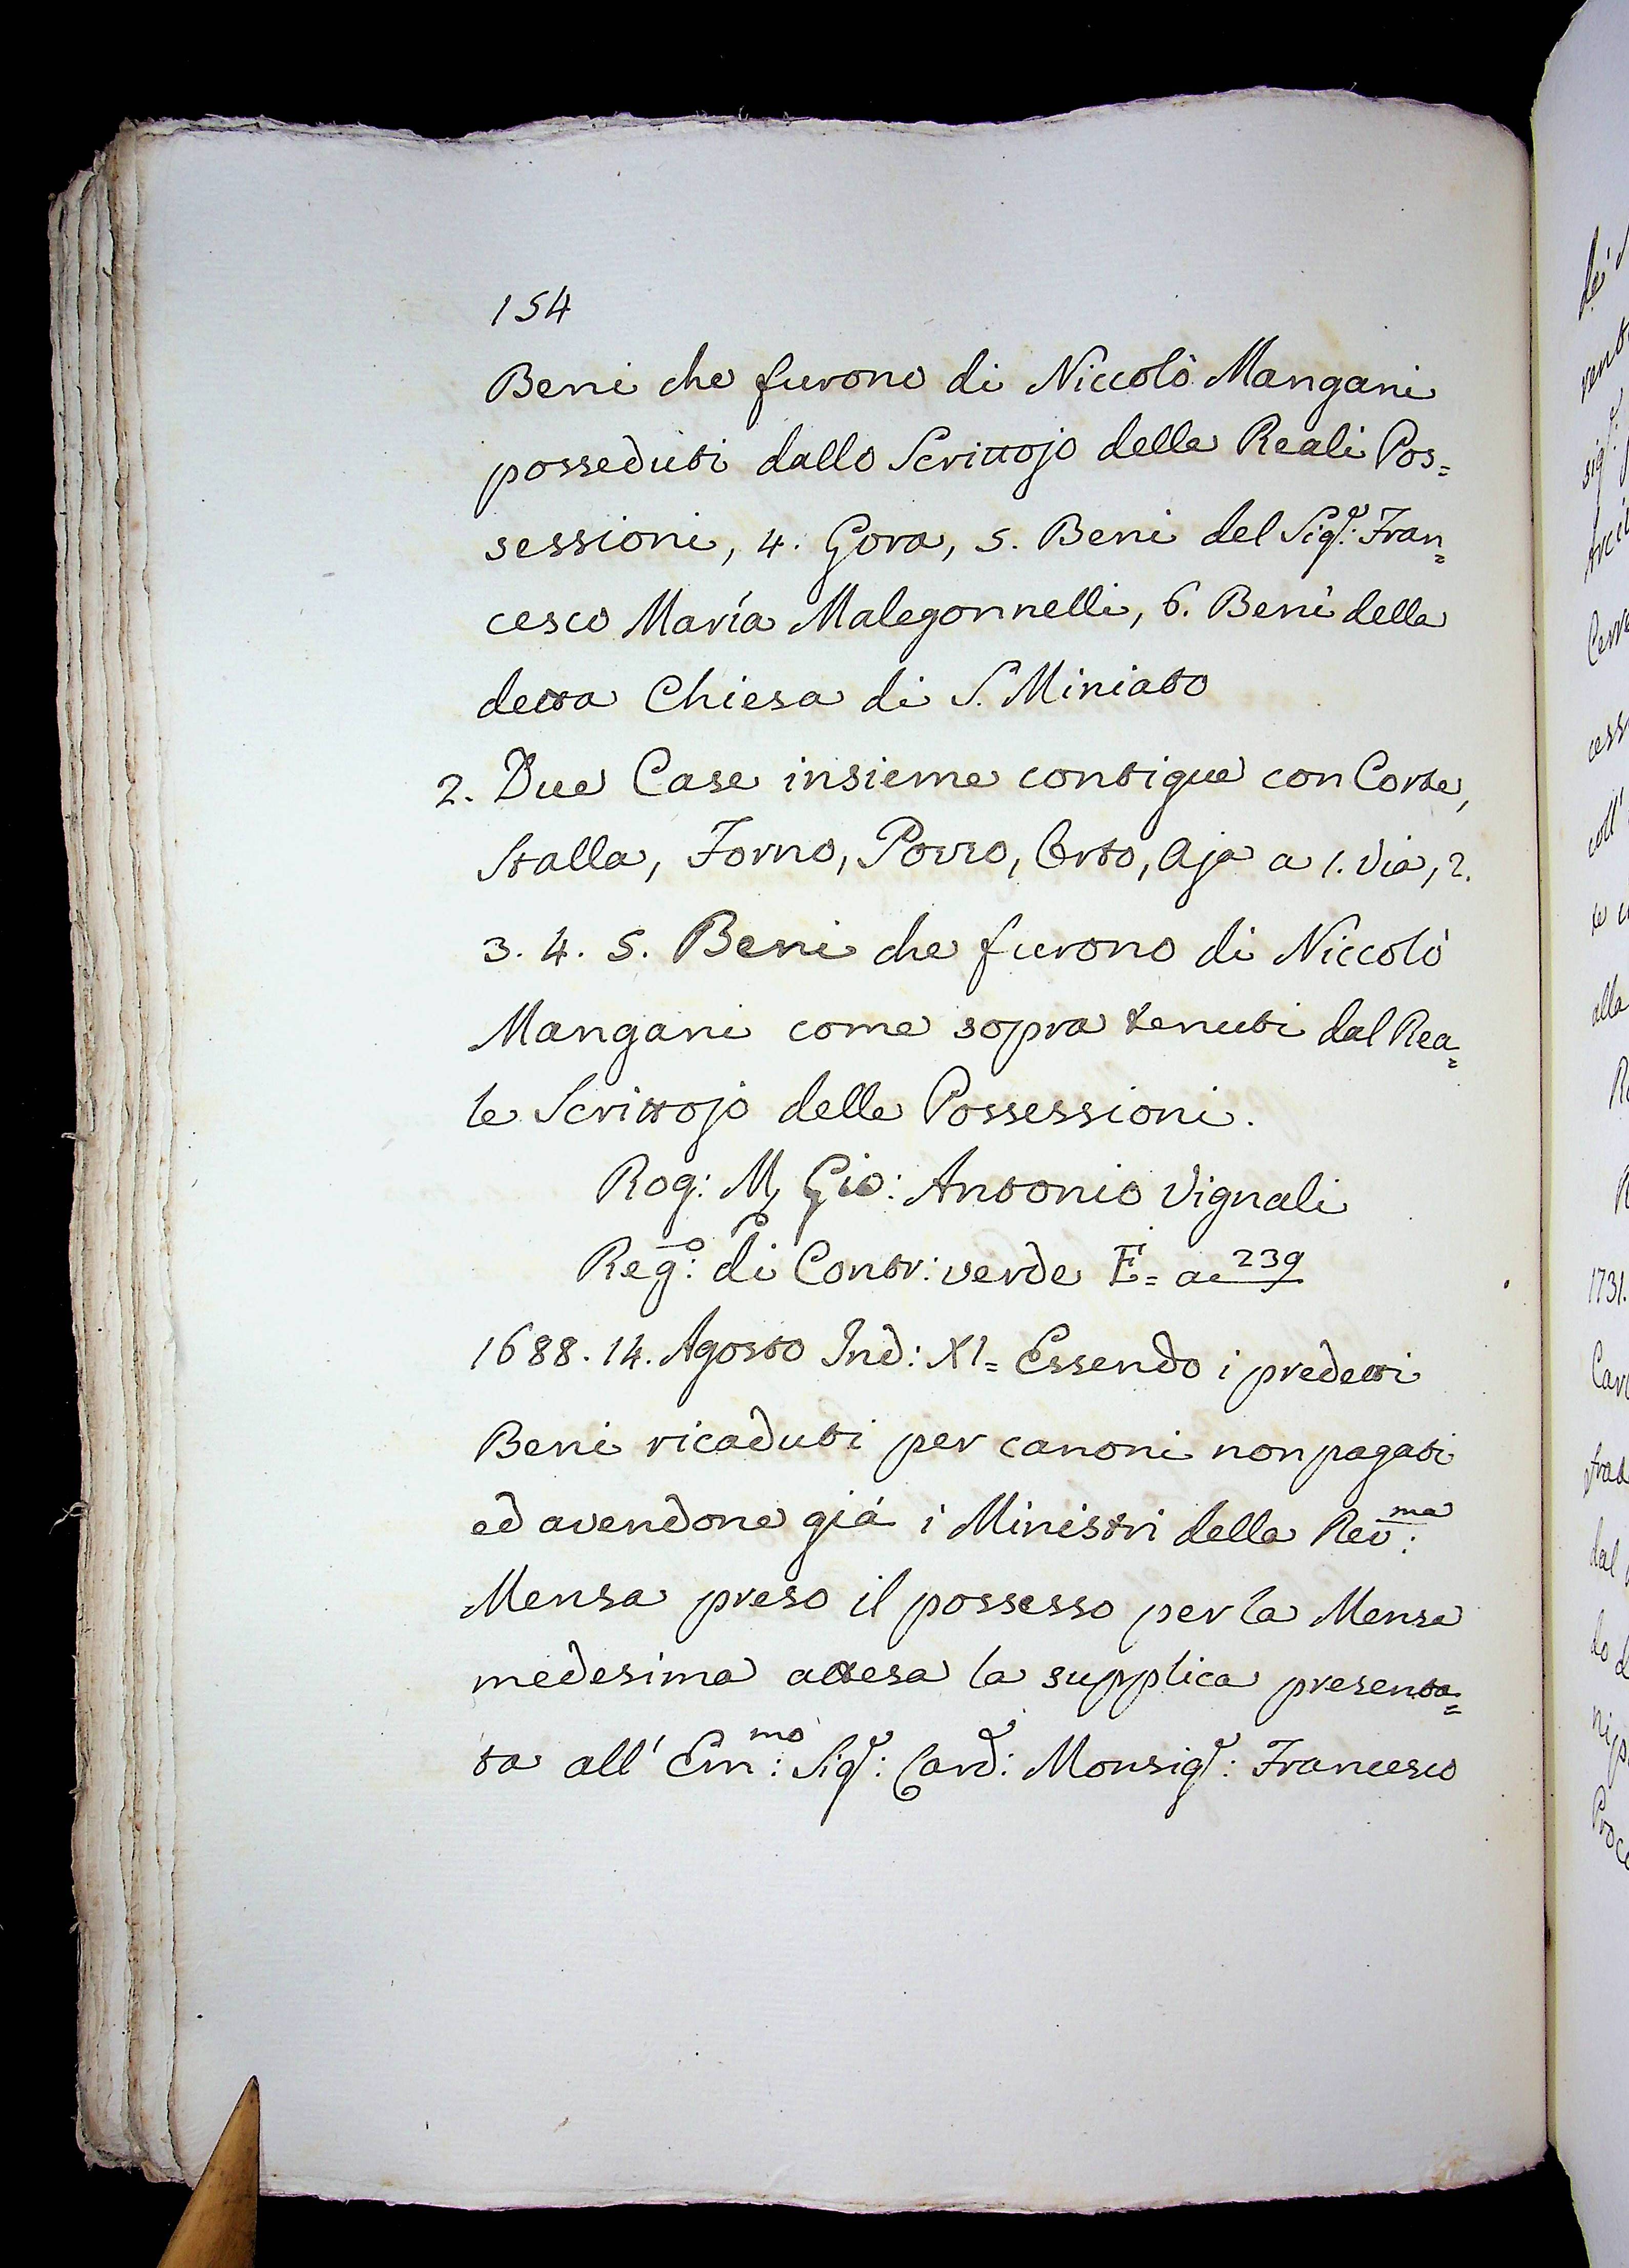 154
Beni che furono di Niccolò Mangani
posseduti dallo Scrittojo delle Reali Pos=
sessioni, 4. Gora, 5. Beni del Sig.r: Fran=
cesco María Malegonnelli, 6. Beni della
detta Chiesa di S. Miniato
2. Due Case insieme contigue con Corte,
Stalla, Forno, Pozzo, Orto, Aja a 1. Via, 2.
3. 4. 5. Beni che furono di Niccolò
Mangani come sopra tenuti dal Rea=
le Scrittojo delle Possessioni.
Rog: M, Gio: Antonio Vignali
Reg.o: di Contr: verde E= a 239
1688. 14. Agosto Ind: XI= Essendo i predetti
Beni ricaduti per canoni non pagati
ed avendone giá i Ministri della Rev.ma:
Mensa preso il possesso per la Mensa
medesima attesa la supplica presenta=
ta all' Em.mo: Sig.r: Card: Monsig.r: Francesco